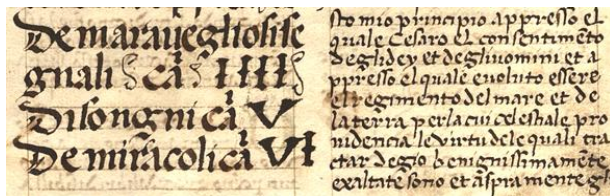 De marauegliosi se
gnali § cā § IIII §
Di songni cā V
De miracoli cā VI
sto mio principio appresso el
quale Cesaro el consentimēto
degli dey et degli uomini et a
ppresso el quale evoluto essere
el regimento del mare et de
la terra per la cui celestiale pro
videncia le virtu dele quali tra
ctar degio benignissimamēte
exaltate sono et aspramente gl